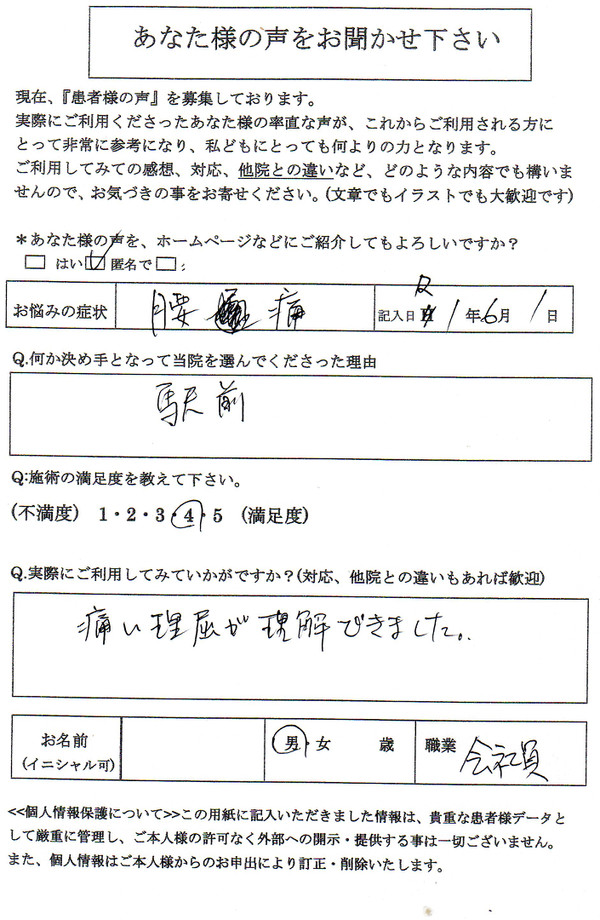 あなた様の声をお聞かせ下さい
現在、『患者様の声』を募集しております。
実際にご利用くださったあなた様の率直な声が、これからご利用される方に
とって非常に参考になり、私どもにとっても何よりの力となります。
ご利用してみての感想、対応、他院との違いなど、どのような内容でも構いま
せんので、お気づきの事をお寄せください。(文章でもイラストでも大歓迎です)
*あなた様の声を、ホームページなどにご紹介してもよろしいですか？
はい 匿名で :
お悩みの症状 腰 痛 記入日 R 1年6月1日
Q.何か決め手となって当院を選んでくださった理由
駅前
Q:施術の満足度を教えて下さい。
(不満度) 1・2・3・4・5 (満足度)
Q.実際にご利用してみていかがですか？(対応、他院との違いもあれば歓迎)
痛い理屈が理解できました。
お名前 男・女 歳 職業 会社員
(イニシャル可)
<<個人情報保護について>>この用紙に記入いただきました情報は、貴重な患者様データと
して厳重に管理し、ご本人様の許可なく外部への開示・提供する事は一切ございません。
また、個人情報はご本人様からのお申出により訂正・削除いたします。